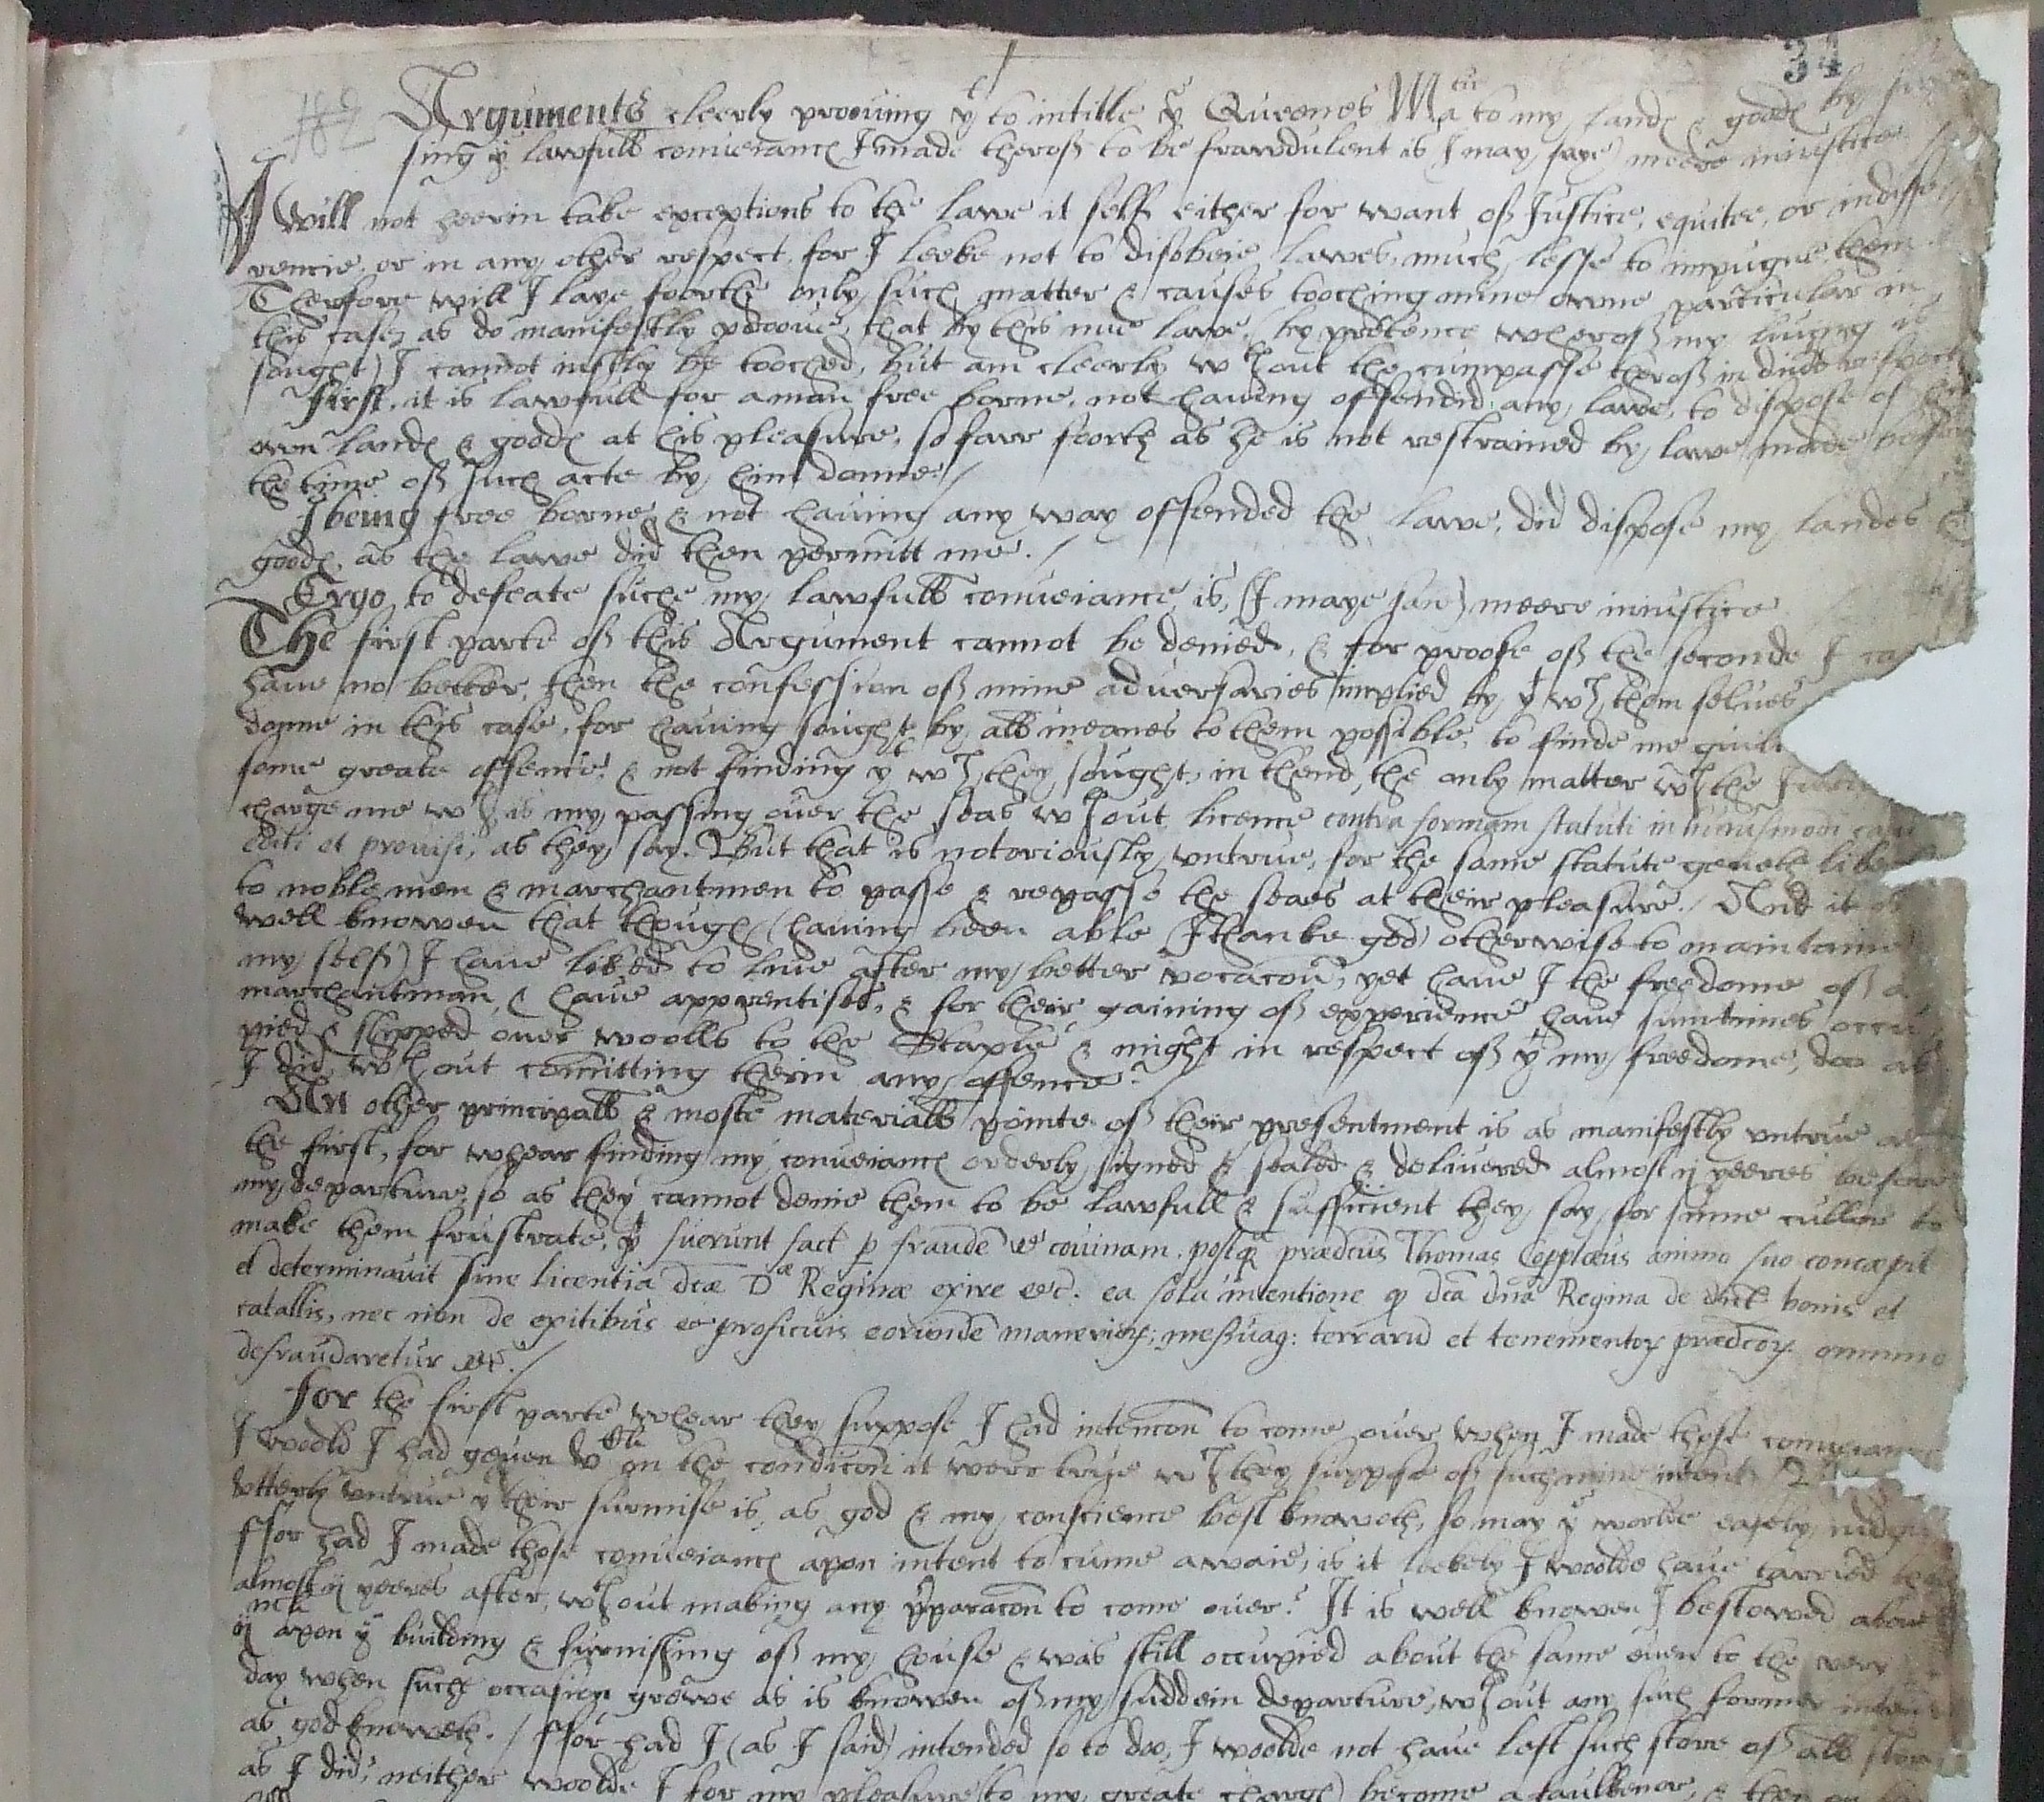 34
Arguments cleerly prooving yt to intitle ye Queenes Matie to my landes & goodes by
sing ye lawfull conveiance I made therof to be frawdulent is (I may saye) meere iniustice
I will not heerin take exceptions to the lawe it self either for want of Iustice, equitee, or indiffe
rencie, or in any other respect, for I leeke not to disobeie lawes, much lesse to impugne them
Therfore will I laye foorthe only such matter & causes tooching mine owne particular in
this case, as do manifestly proove, that by this nue lawe, (by pretence wherof my living is
sought) I cannot iustly be tooched, but am cleerly wthout the cumpasse therof in divers respects
First, it is lawfull for a man free borne, not having offended any lawe, to dispose of his
own landes & goodes at his pleasure, so farr foorth as he is not restrained by lawe made before
the time of such acte by him donne./
I being free borne & not having any way offended the lawe, did dispose my landes &
goodes, as the lawe did then permitt me./
Ergo to defeate suche my lawfull conveiance, is, (I maye saie) meere iniustice
The first parte of this Argument cannot be denied, & for proofe of the seconde I ca
have no better, then the confession of mine adversaries implied by yt wch them selves
donne in this case, for having sought by all meanes to them possible, to finde me guilt
some greate offence, & not finding yt wch they sought, in thend, the only matter wch the
charge me wth is my passing over the seas wthout licence contra formam statuti in huiusmodi casu
editi et provisi, as they say. But that is notoriously untrue, for the same statute geveth libe
to noble men & marchantmen to passe & repasse the seaes at their pleasure./ And it is
well knowen that though (having been able (I thanke god) otherwise to maintaine
my self) I have liked to live after my better vocacon, yet have I the freedome of a
marchantman, & have apprentises, & for their gaining of experience have sumtimes occu
pied & shipped over woolls to the Staple & might in respect of yt my freedome, doo as
I did wthout comitting therin any offence./
An other principall & moste materiall pointe of their presentment is as manifestly untrue as
the first, for whear finding my conveiances orderly signed & sealed & delivered almost ij yeeres before
my departure, so as they cannot denie them to be lawfull & sufficient they say for sume culler to
make them frustrate, yt fuerunt fact p fraudem et covinam, postq prædcus Thomas Copplæus animo suo concæpit
et determinavit sine licentia dcæ Dæ Reginæ exire etc. ea sola intentione qd dca dna Regina de dict bonis et
catallis, nec non de exitibus et proficuis eorunde manerior; messuag: terraru et tenementor prædcor omnino
defraudaretur etc./
For the first parte whear they suppose I had intencon to come over when I made those conveiances
I woold I had geven vcli on the condicon it were true wch they suppose of such mine intent
utterly untrue yt their surmise is, as god & my conscience best knoweth, so may ye worlde easely iudge
ffor had I made those conveiances apon intent to cume awaie, is it leekely I woolde have tarried
almost ij yeeres after, wthout making any pparacon to come over? It is well knowen I bestowed above
ij mli apon ye building & furnishing of my house & was still occupied about the same even to the very
day when such occasion growe as is knowen of my suddein departure, wthout any such former intent
as god knoweth./ ffor had I (as I said) intended so to doo, I woolde not have left such store of all
as I did, neither woolde I for my pleasure (to my greate charge) become a faulkener, & then